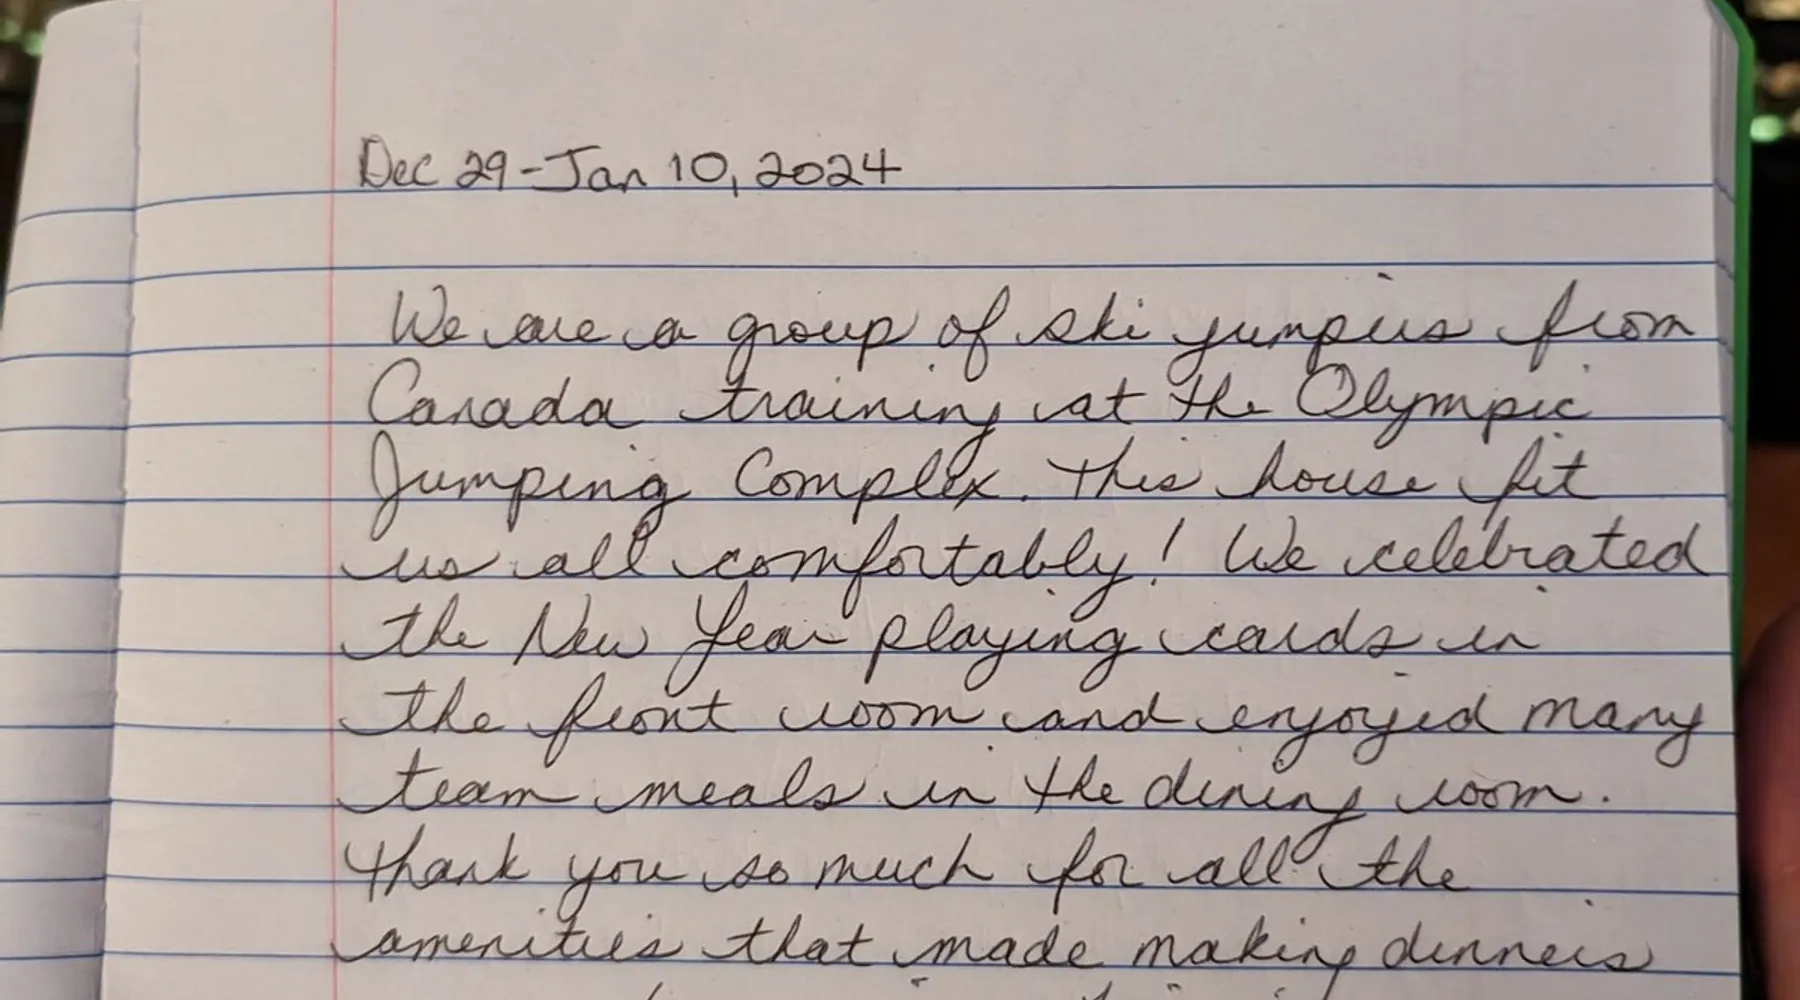 Dec 29-Jan 10, 2024
We are a group of ski jumpers from
Canada training at the Olympic
Jumping Complex. This house fit
us all comfortably! We celebrated
the New Year playing cards in
the front room and enjoyed many
team meals in the dining room.
Thank you so much for all the
amenities that made making dinners